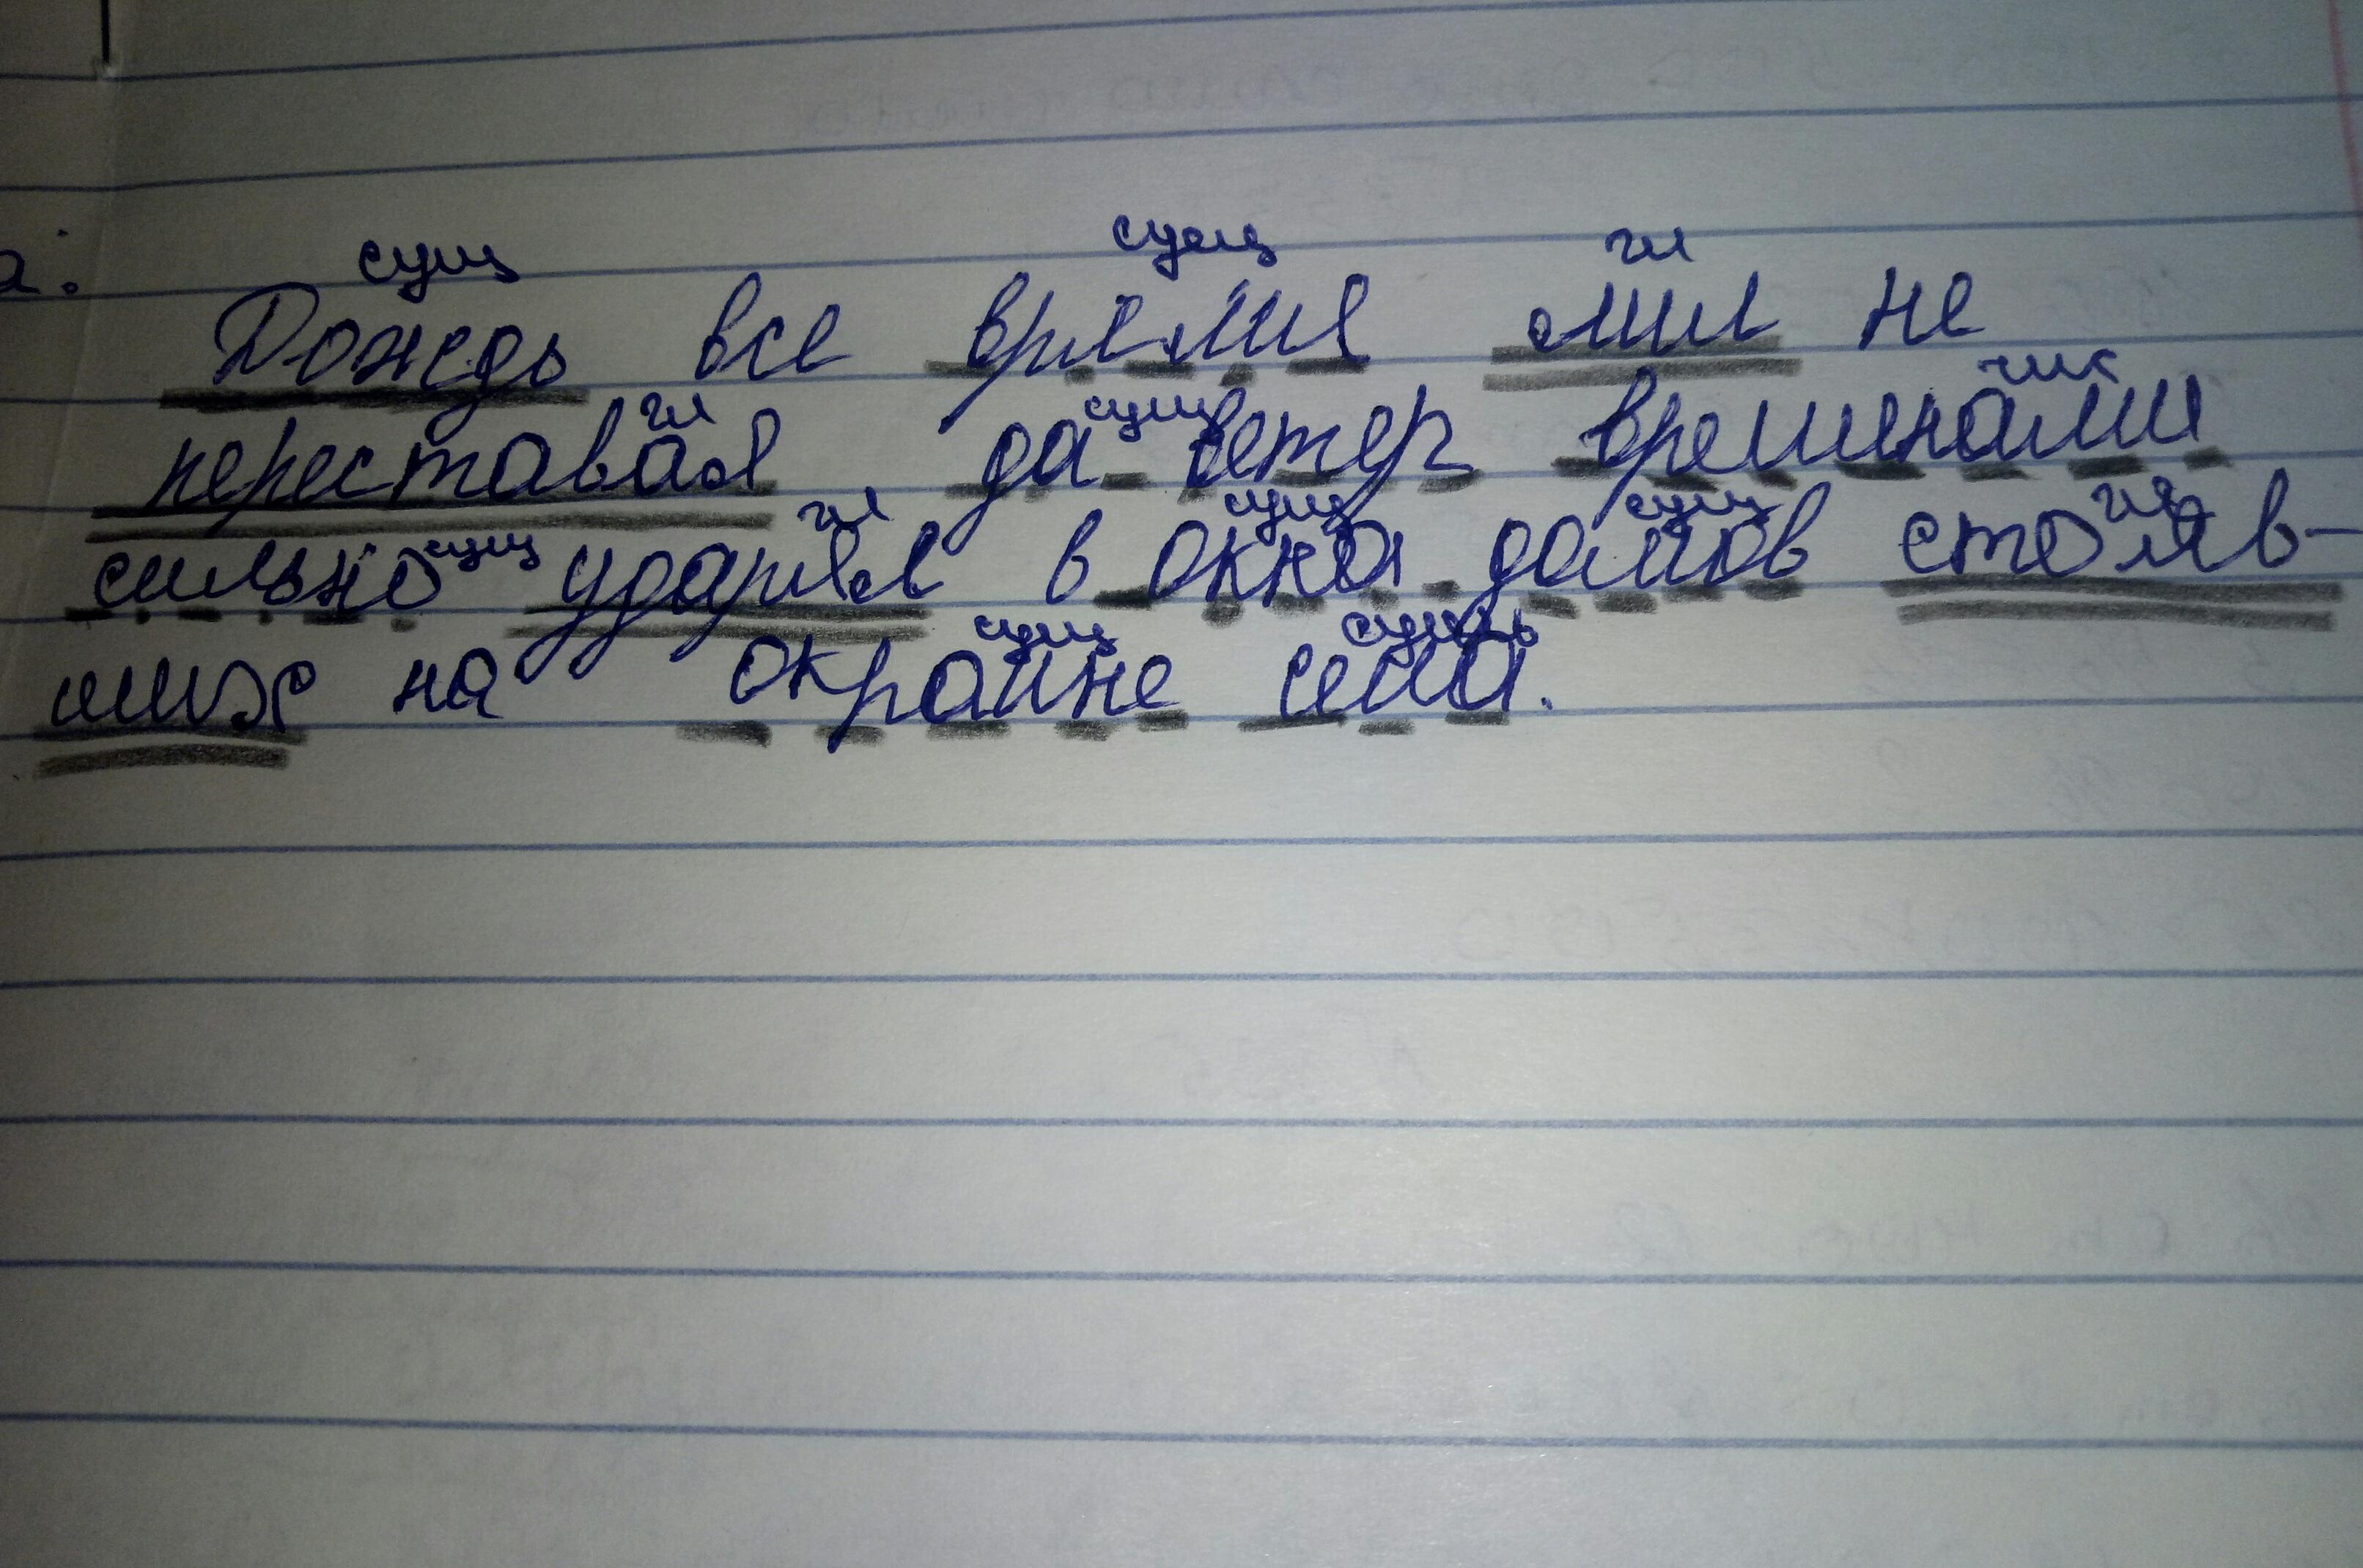 сущ сущ гл
Дождь все время лил не
гл сущ чис
переставая да ветер временами
сущ гл сущ сущ гл
сильно ударял в окна домов стояв-
сущ сущ
ших на окраине села.